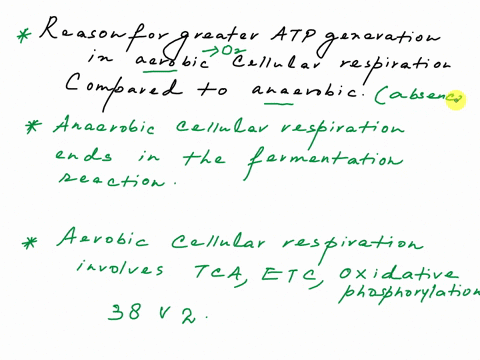 * Reason for greater ATP generation
→ O2
in aerobic Cellular respiration
Compared to anaerobic. (absence
* Anaerobic cellular respiration
ends in the fermentation
reaction.
* Aerobic Cellular respiration
involves TCA, ETC, Oxidative
phosphorylation
38 v 2.